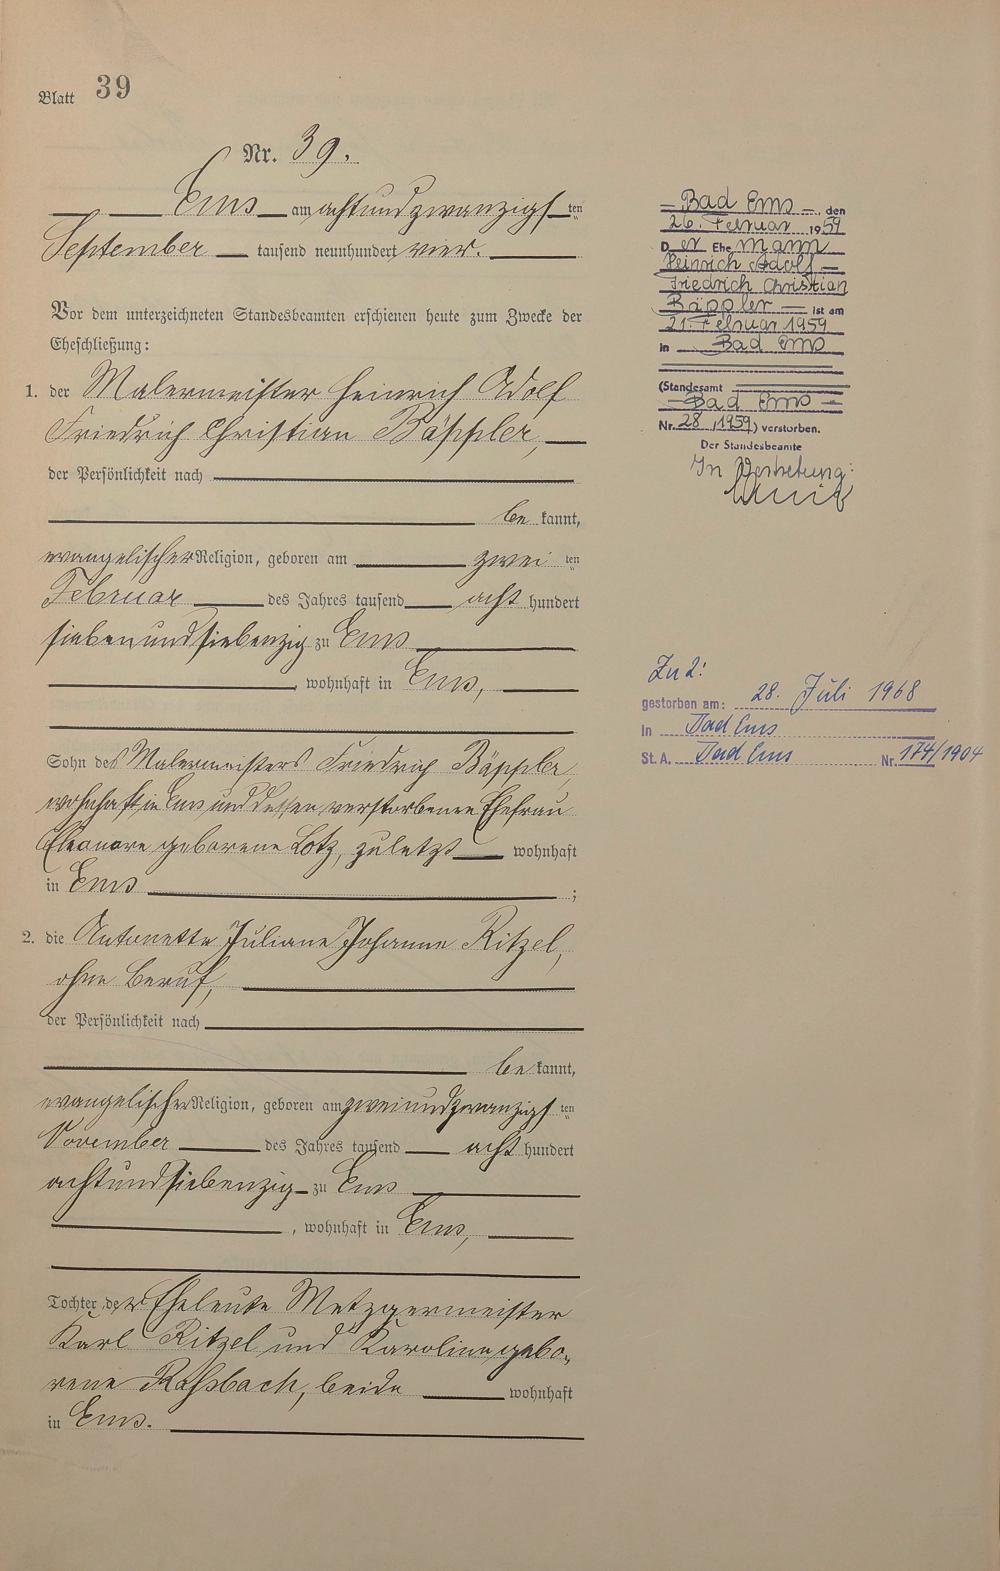 Blatt 39
Nr. 39.
Ems am achtundzwanzigsten
September tausend neunhundert vier.
Vor dem unterzeichneten Standesbeamten erschienen heute zum Zwecke der
Eheschließung:
1. der Malermeister Heinrich Adolf
Friedrich Christian Bäppler,
der Persönlichkeit nach
be kannt,
evangelischer Religion, geboren am zwei ten
Februar des Jahres tausend acht hundert
siebenundsiebenzig zu Ems
, wohnhaft in Ems,
Sohn des Malermeisters Friedrich Bäppler,
wohnhaft in Ems und dessen verstorbenen Ehefrau
Eleonore geborene Lotz, zuletzt wohnhaft
in Ems ;
2. die Antonette Juliane Johanne Ritzel,
ohne Beruf,
der Persönlichkeit nach
be kannt,
evangelischer Religion, geboren am zweiundzwanzigsten
November des Jahres tausend acht hundert
achtundsiebenzig zu Ems
, wohnhaft in Ems,
Tochter der Eheleute Metzgermeister
Karl Ritzel und Karoline gebo-
rene Roßbach, beide wohnhaft
in Ems.
Bad Ems, den
26. Februar 1959
Der Ehemann
Heinrich Adolf
Friedrich Christian
Bäppler ist am
21. Februar 1959
in Bad Ems
(Standesamt
Bad Ems
Nr. 28, 1959) verstorben.
Der Standesbeamte
In Vertretung:
Zu 2:
gestorben am: 28. Juli 1968
in Bad Ems
St. A. Bad Ems Nr. 174/1904